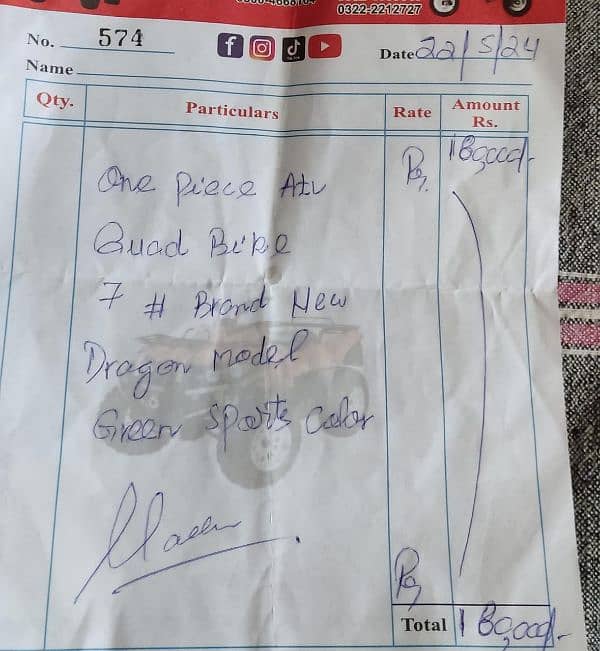 0322-2212727
No. 574
Date 22/5/24
Name
Qty. Particulars Rate Amount Rs.
One Piece Atv Rs. 180,000/-
Quad Bike
7 # Brand New
Dragon Model
Green Sports Color
Rs
Total 180,000/-